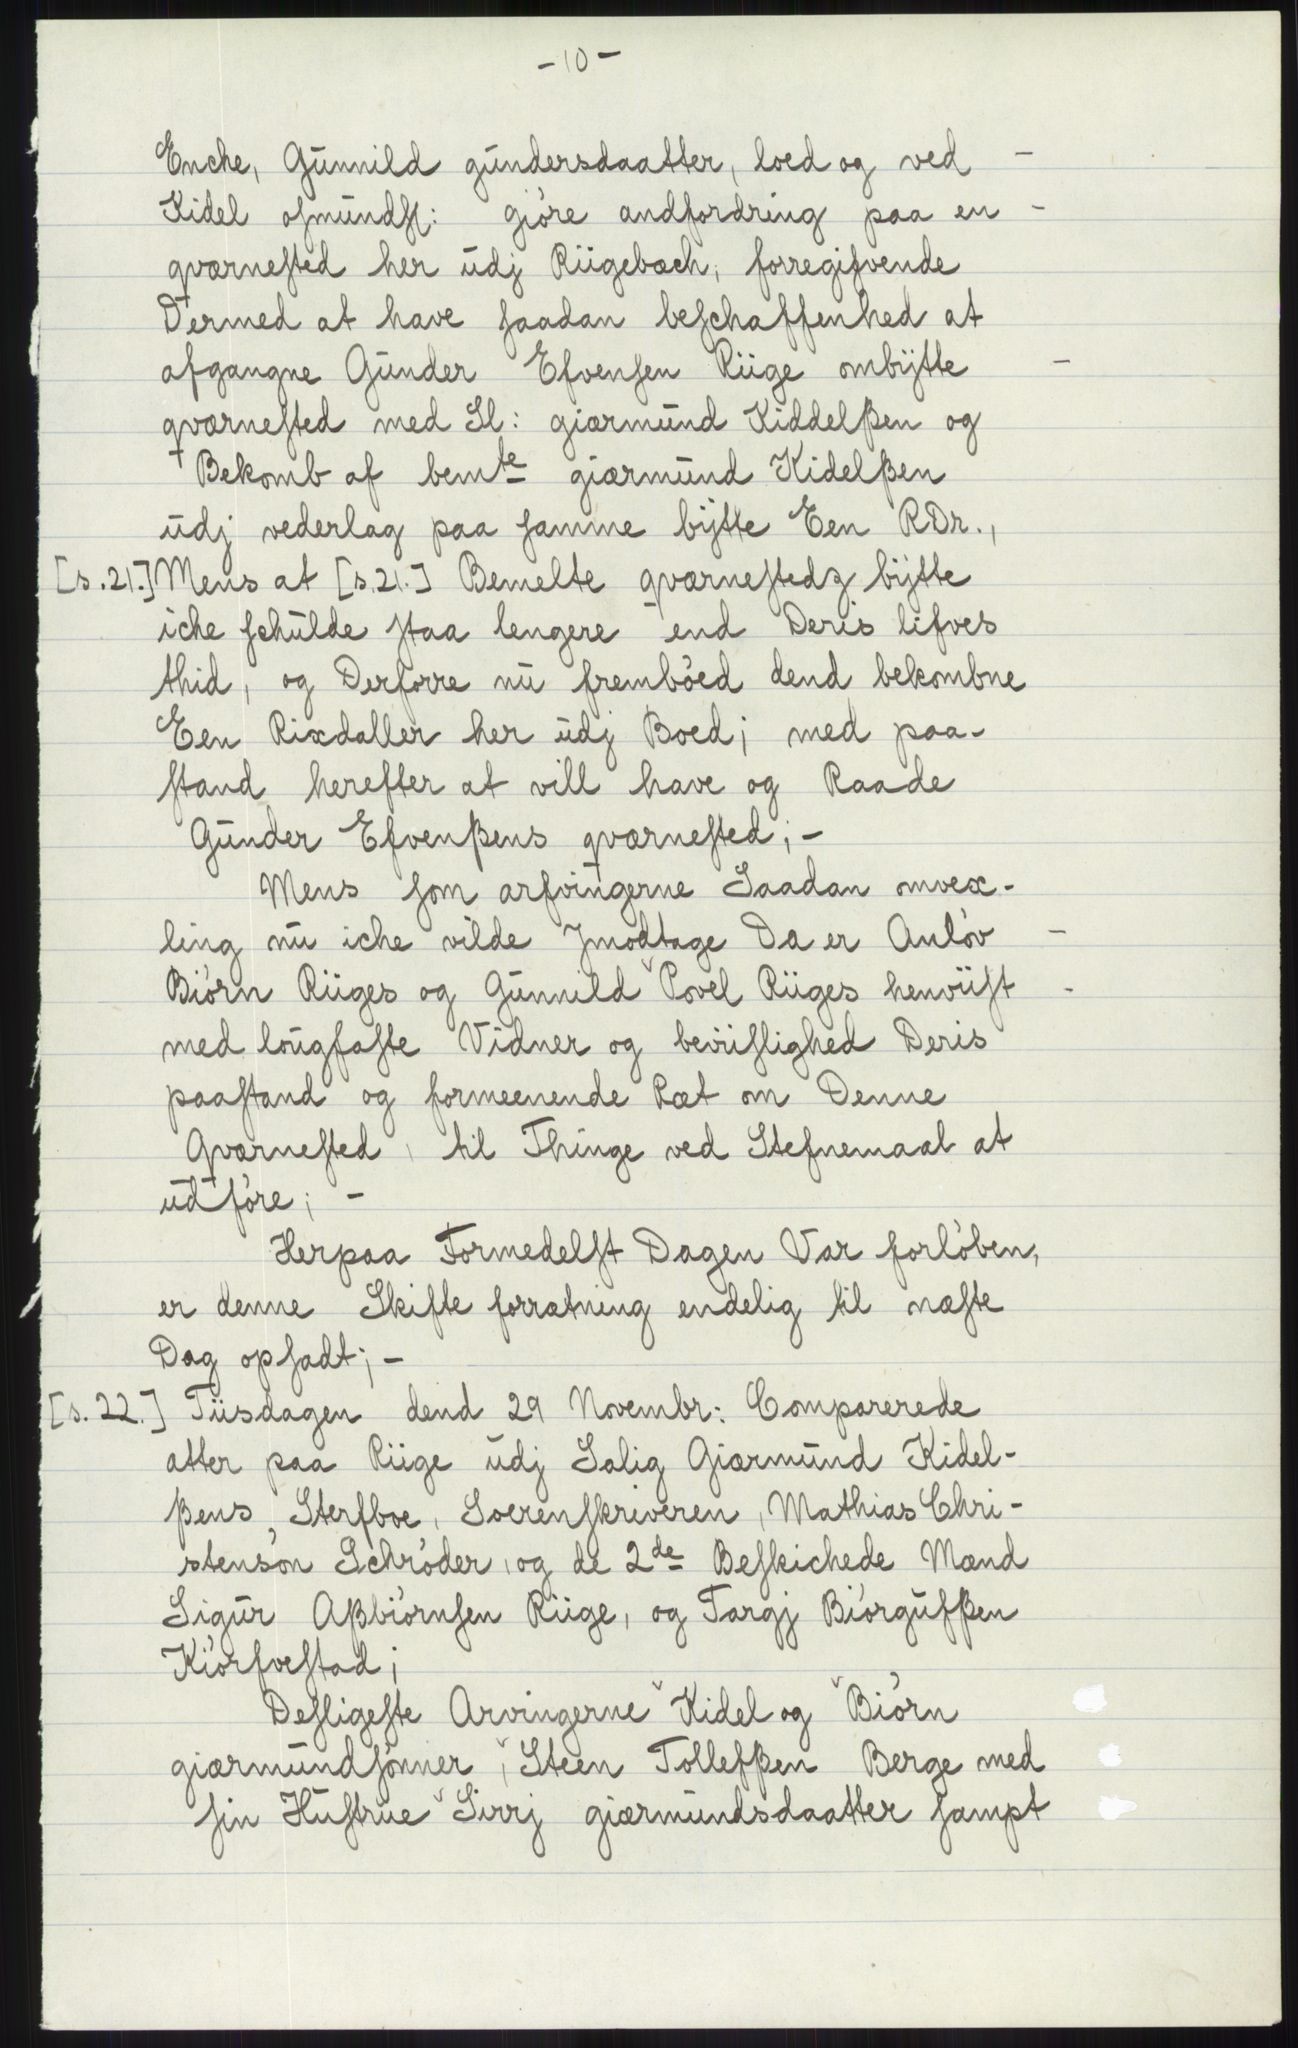 -10-
Enche, Gunnild gundersdaatter, loed og ved -
Kidel osmundſl: giöre andfordring paa en -
qværneſted her udj Riigebæch, forregifvende
Dermed at have ſaadan beſchaffenhed at
afgangne Gunder Efvenſen Riige ombÿtte -
qværneſted med Sl: giærmund Kiddelßen og
Bekomb af bemte giærmund Kidelßen
udj vederlag paa ſamme bÿtte Een RDr.,
[s.21.] Mens at [s.21.] Bemelte qværneſtedz bÿtte
iche ſchulde ſtaa lengere end Deris lifves
thid, og Derforre nu fremböed dend bekombne
Een Rixdaller her udj Boed; med paa-
ſtand herefter at vill have og Raade
Gunder Efvenßens qværneſted; -
Mens ſom arfvingerne Saadan omvex-
ling nu iche vilde Jmodtage Da er Aulöv -
Biörn Riiges og Gunnild Povel Riiges henviiſt -
med lougfaſte Vidner og beviiſlighed Deris
paaſtand og formeenende Ræt om Denne
Qværneſted, til Thinge ved Stefnemaal at
udföre; -
Herpaa Formedelſt Dagen Var forlöben,
er denne Skifte forrætning endelig til næſte
Dag opſadt; -
[s. 22.] Tiisdagen dend 29 Novembr: Comparerede
atter paa Riige udj Salig Giærmund Kidel-
ßens Sterfboe, Sorenſkriveren, Mathias Chri-
stensön Schröder, og de 2de Beſkichede Mænd
Sigur Aßbiörnſen Riige, og Targj Biörgufßen
Kiörfveſtad;
Deſligeſte Arvingerne Kidel og Biörn
giærmundſönner, Steen Tollefßen Berge med
ſin Huſtrue Sirrj giærmundsdaatter ſampt